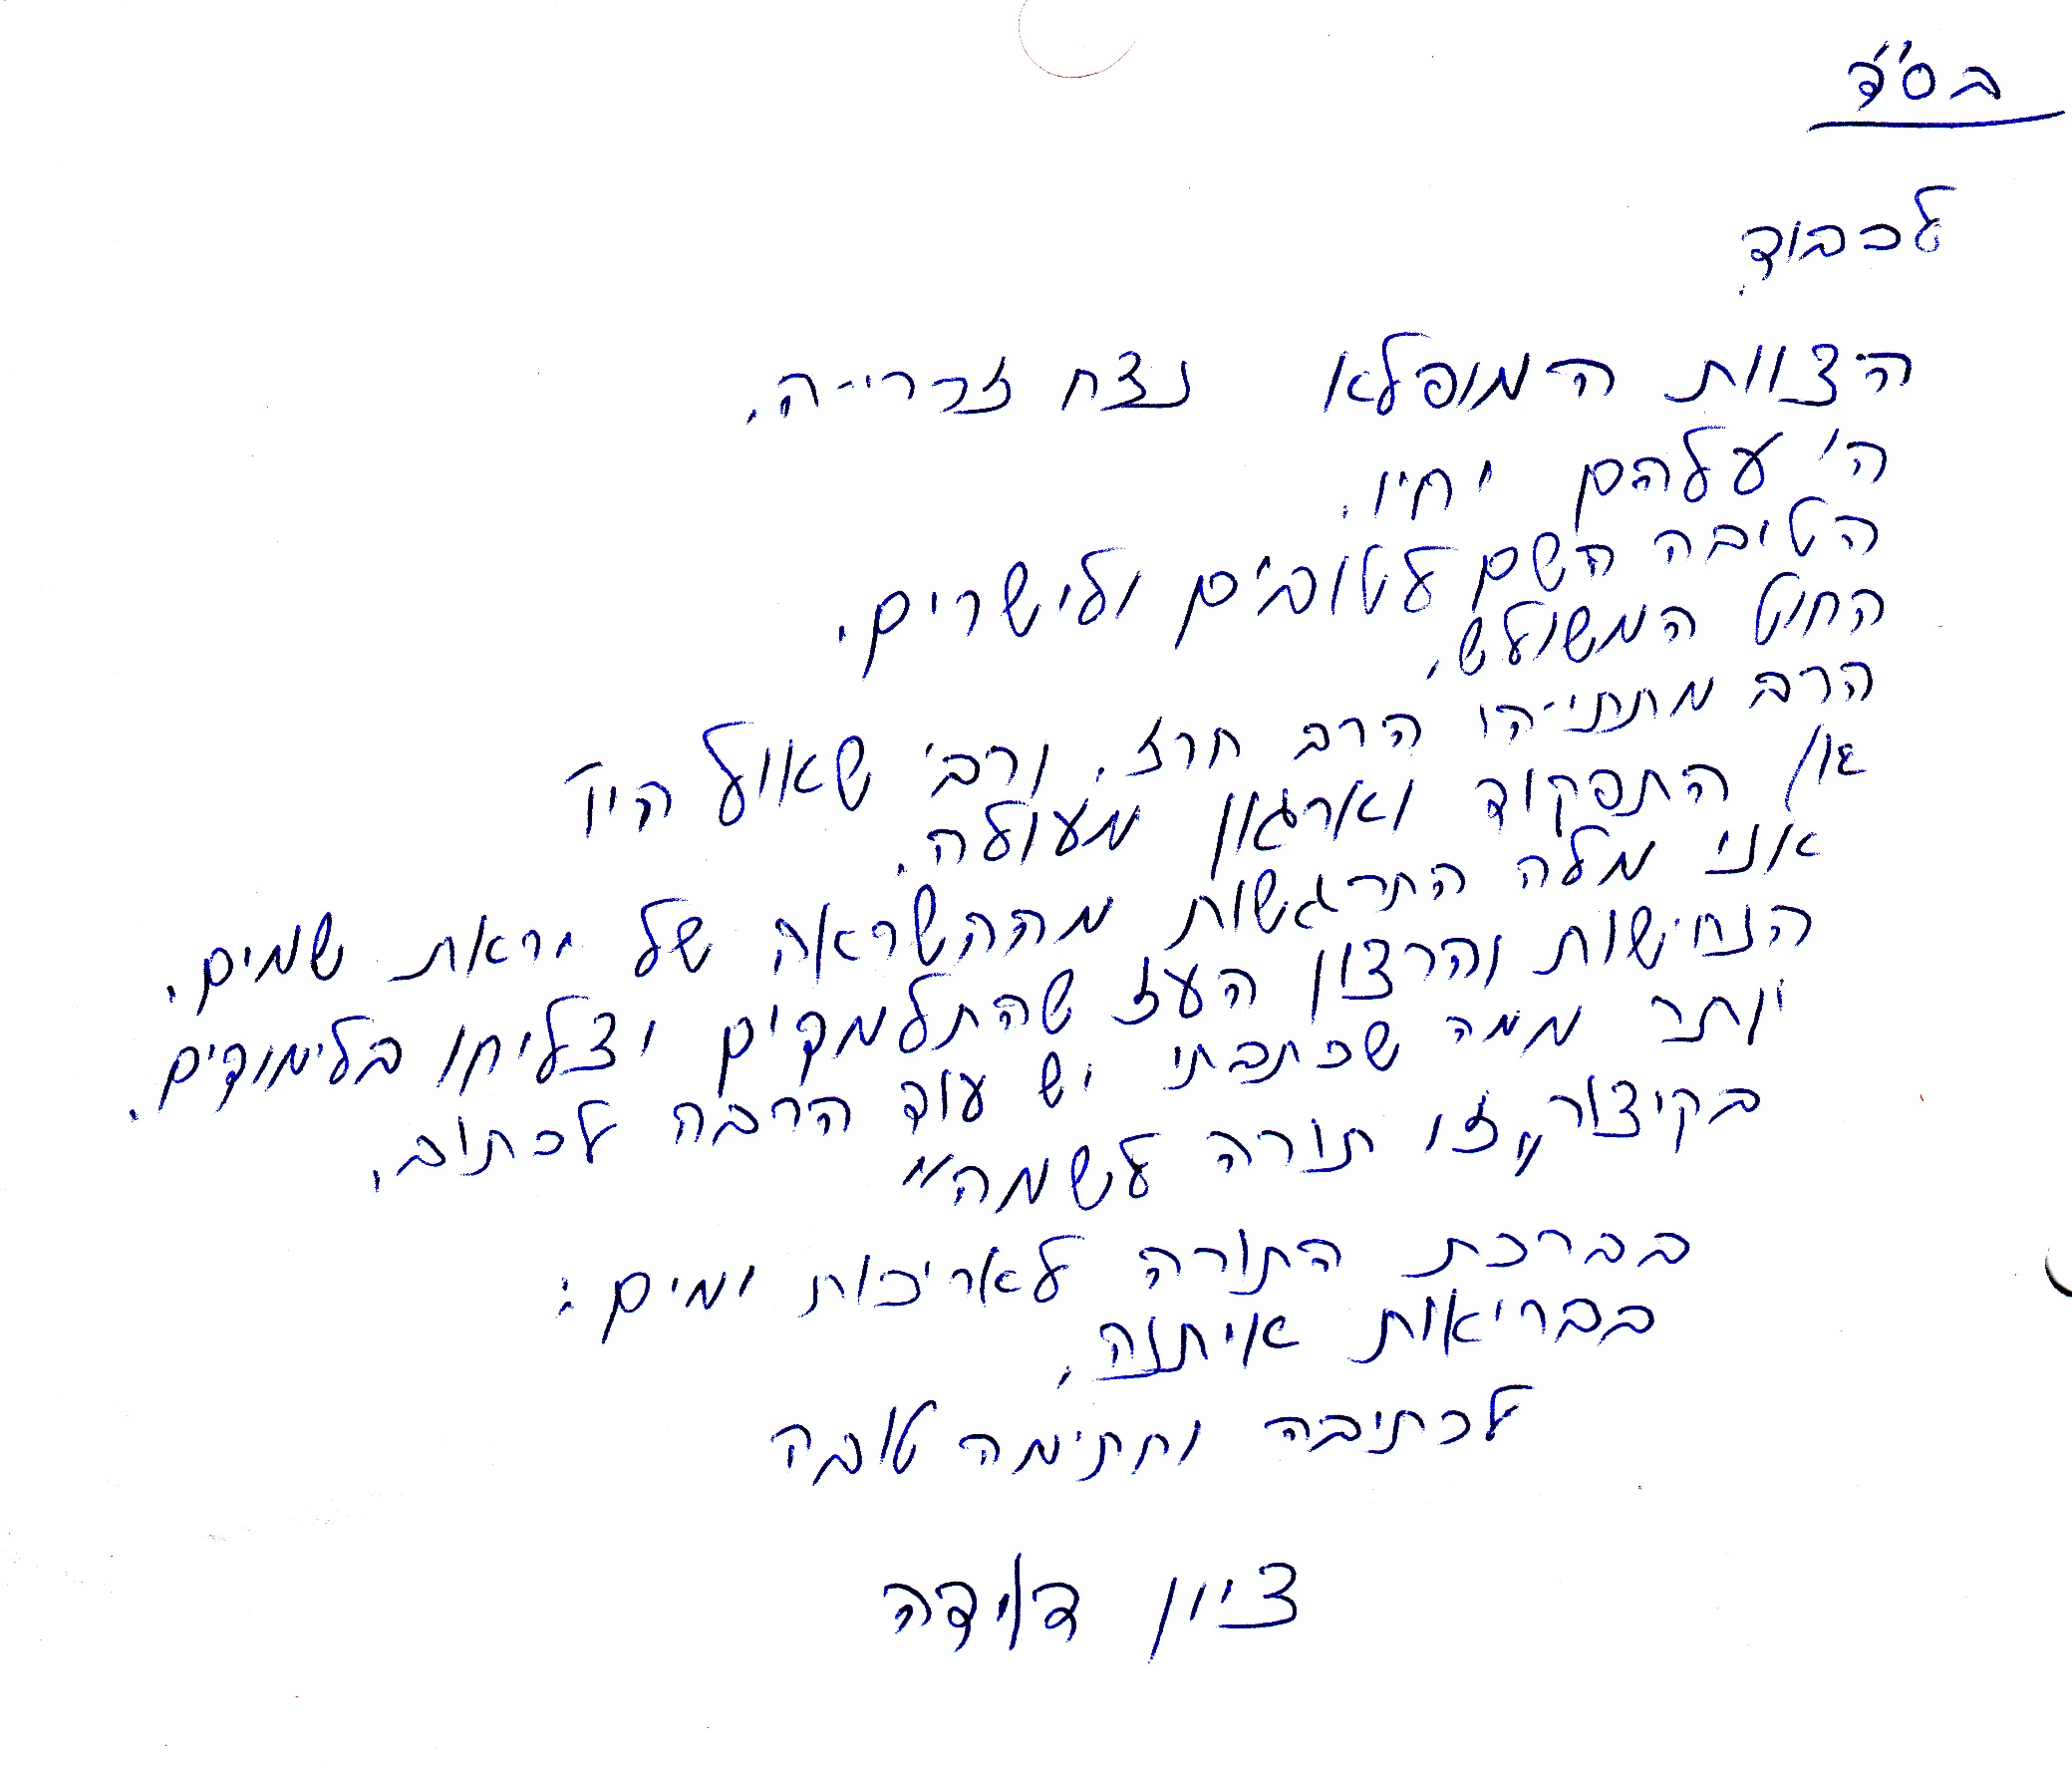 בס"ד
לכבוד
הצוות המופלא נצח זכריה.
ה' עלהם יחיו.
הטיבה השם לטובים ולישרים.
החוט המשולש,
הרב מתתיהו הרב חרז. ורב' שאול היו
התפקוד וארגון מעולה.
אני מלה התרגשות מההשראה של יראת שמים.
הנחישות והרצון העז שהתלמדים יצליחו בלימודים.
יותר ממה שכתבתי יש עוד הרבה לכתוב.
בקיצור "זו תורה לשמה"
בברכת התורה לאריכות ימים:
בבריאות איתנה,
לכתיבה וחתימה טובה
ציון דוידה